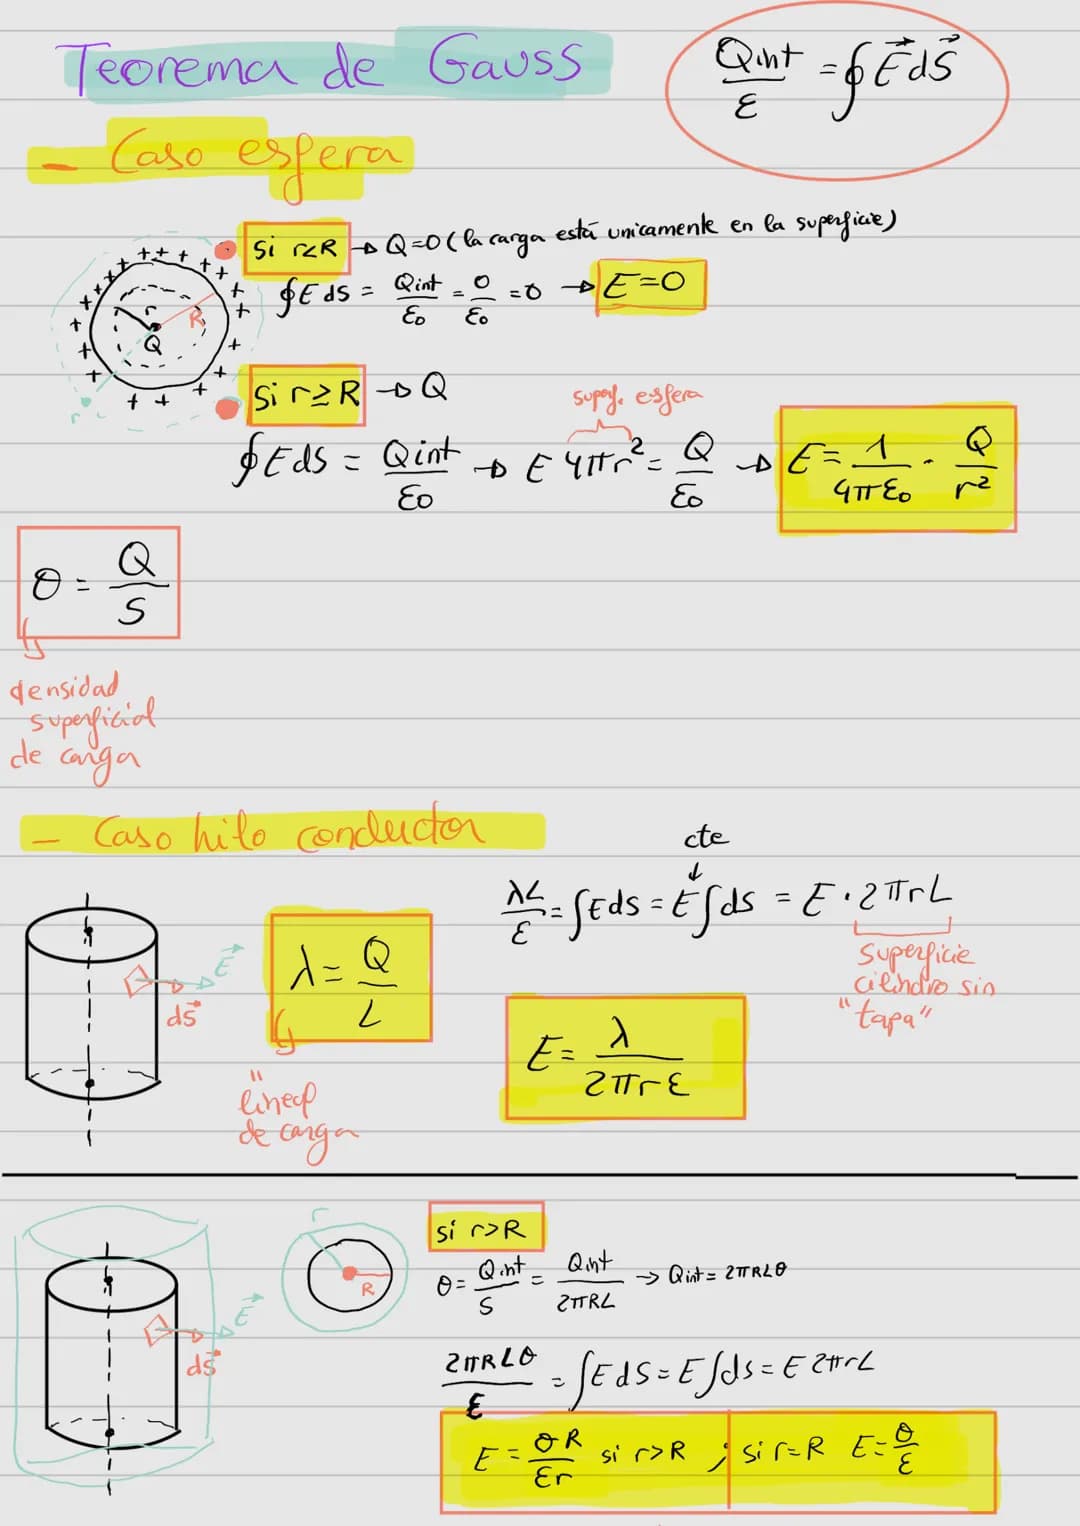 Teorema de Gauss
Qint/ε = ∮E⃗ dS⃗
- Caso esfera
si r<R → Q=0 (la carga está unicamente en la superficie)
∮E ds = Qint/ε₀ = 0/ε₀ = 0 → E=0
r
R
Q
r
si r≥R → Q
superf. esfera
∮E ds = Qint/ε₀ → E 4πr² = Q/ε₀ → E = 1/4πε₀ · Q/r²
σ = Q/S
densidad
superficial
de carga
- Caso hilo conductor
cte
λL/ε = ∫E ds = E∫ds = E · 2πrL
Superficie
cilindro sin
"tapa"
E⃗
ds⃗
λ = Q/L
E = λ/2πrε
"
lineal
de carga
si r>R
r
R
σ = Qint/S = Qint/2πRL → Qint = 2πRLσ
E⃗
ds⃗
2πRLσ/ε = ∫E dS = E∫ds = E 2πrL
E = σR/εr si r>R ; si r=R E = σ/ε